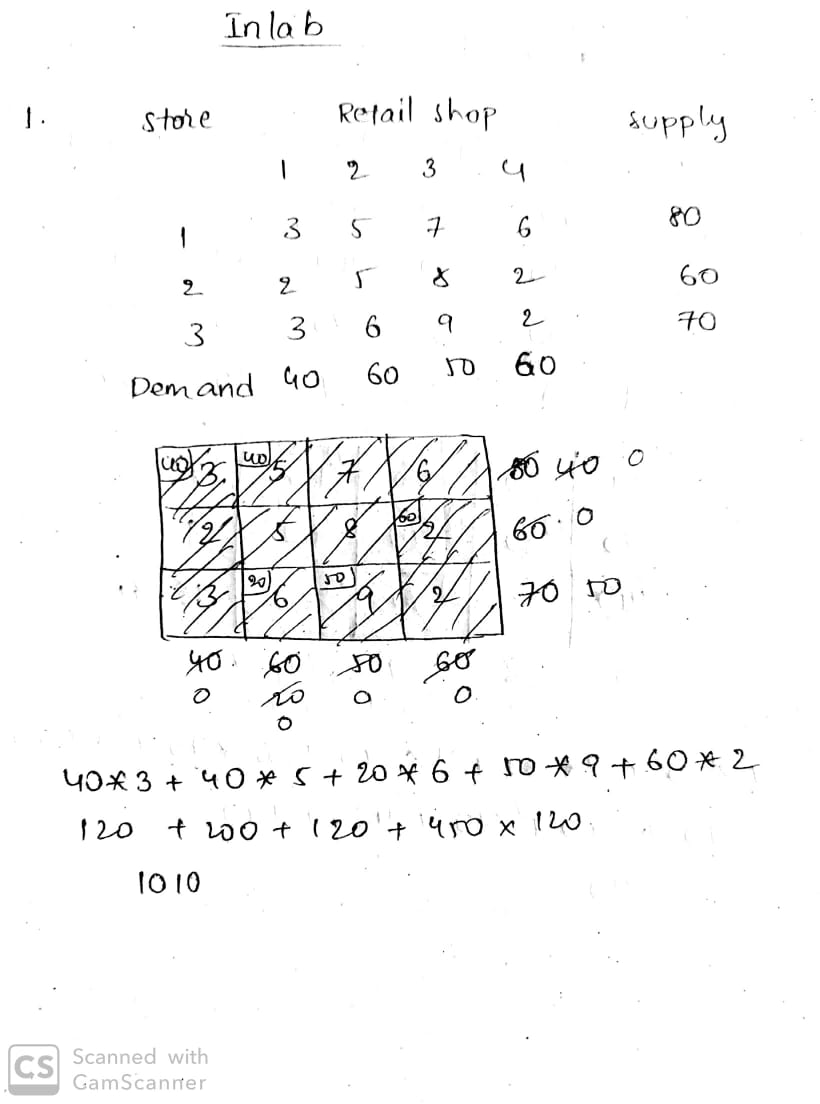 Inlab
1. Store Retail shop supply
1 2 3 4
1 3 5 7 6 80
2 2 5 8 2 60
3 3 6 9 2 70
Demand 40 60 50 60
40 3 40 5 7 6 80 40 0
2 5 8 60 2 60 0
3 20 6 50 9 2 70 50
40 60 50 60
0 20 0 0
0
40*3 + 40*5 + 20*6 + 50*9 + 60*2
120 + 200 + 120 + 450 x 120
1010
CS Scanned with
GamScanner